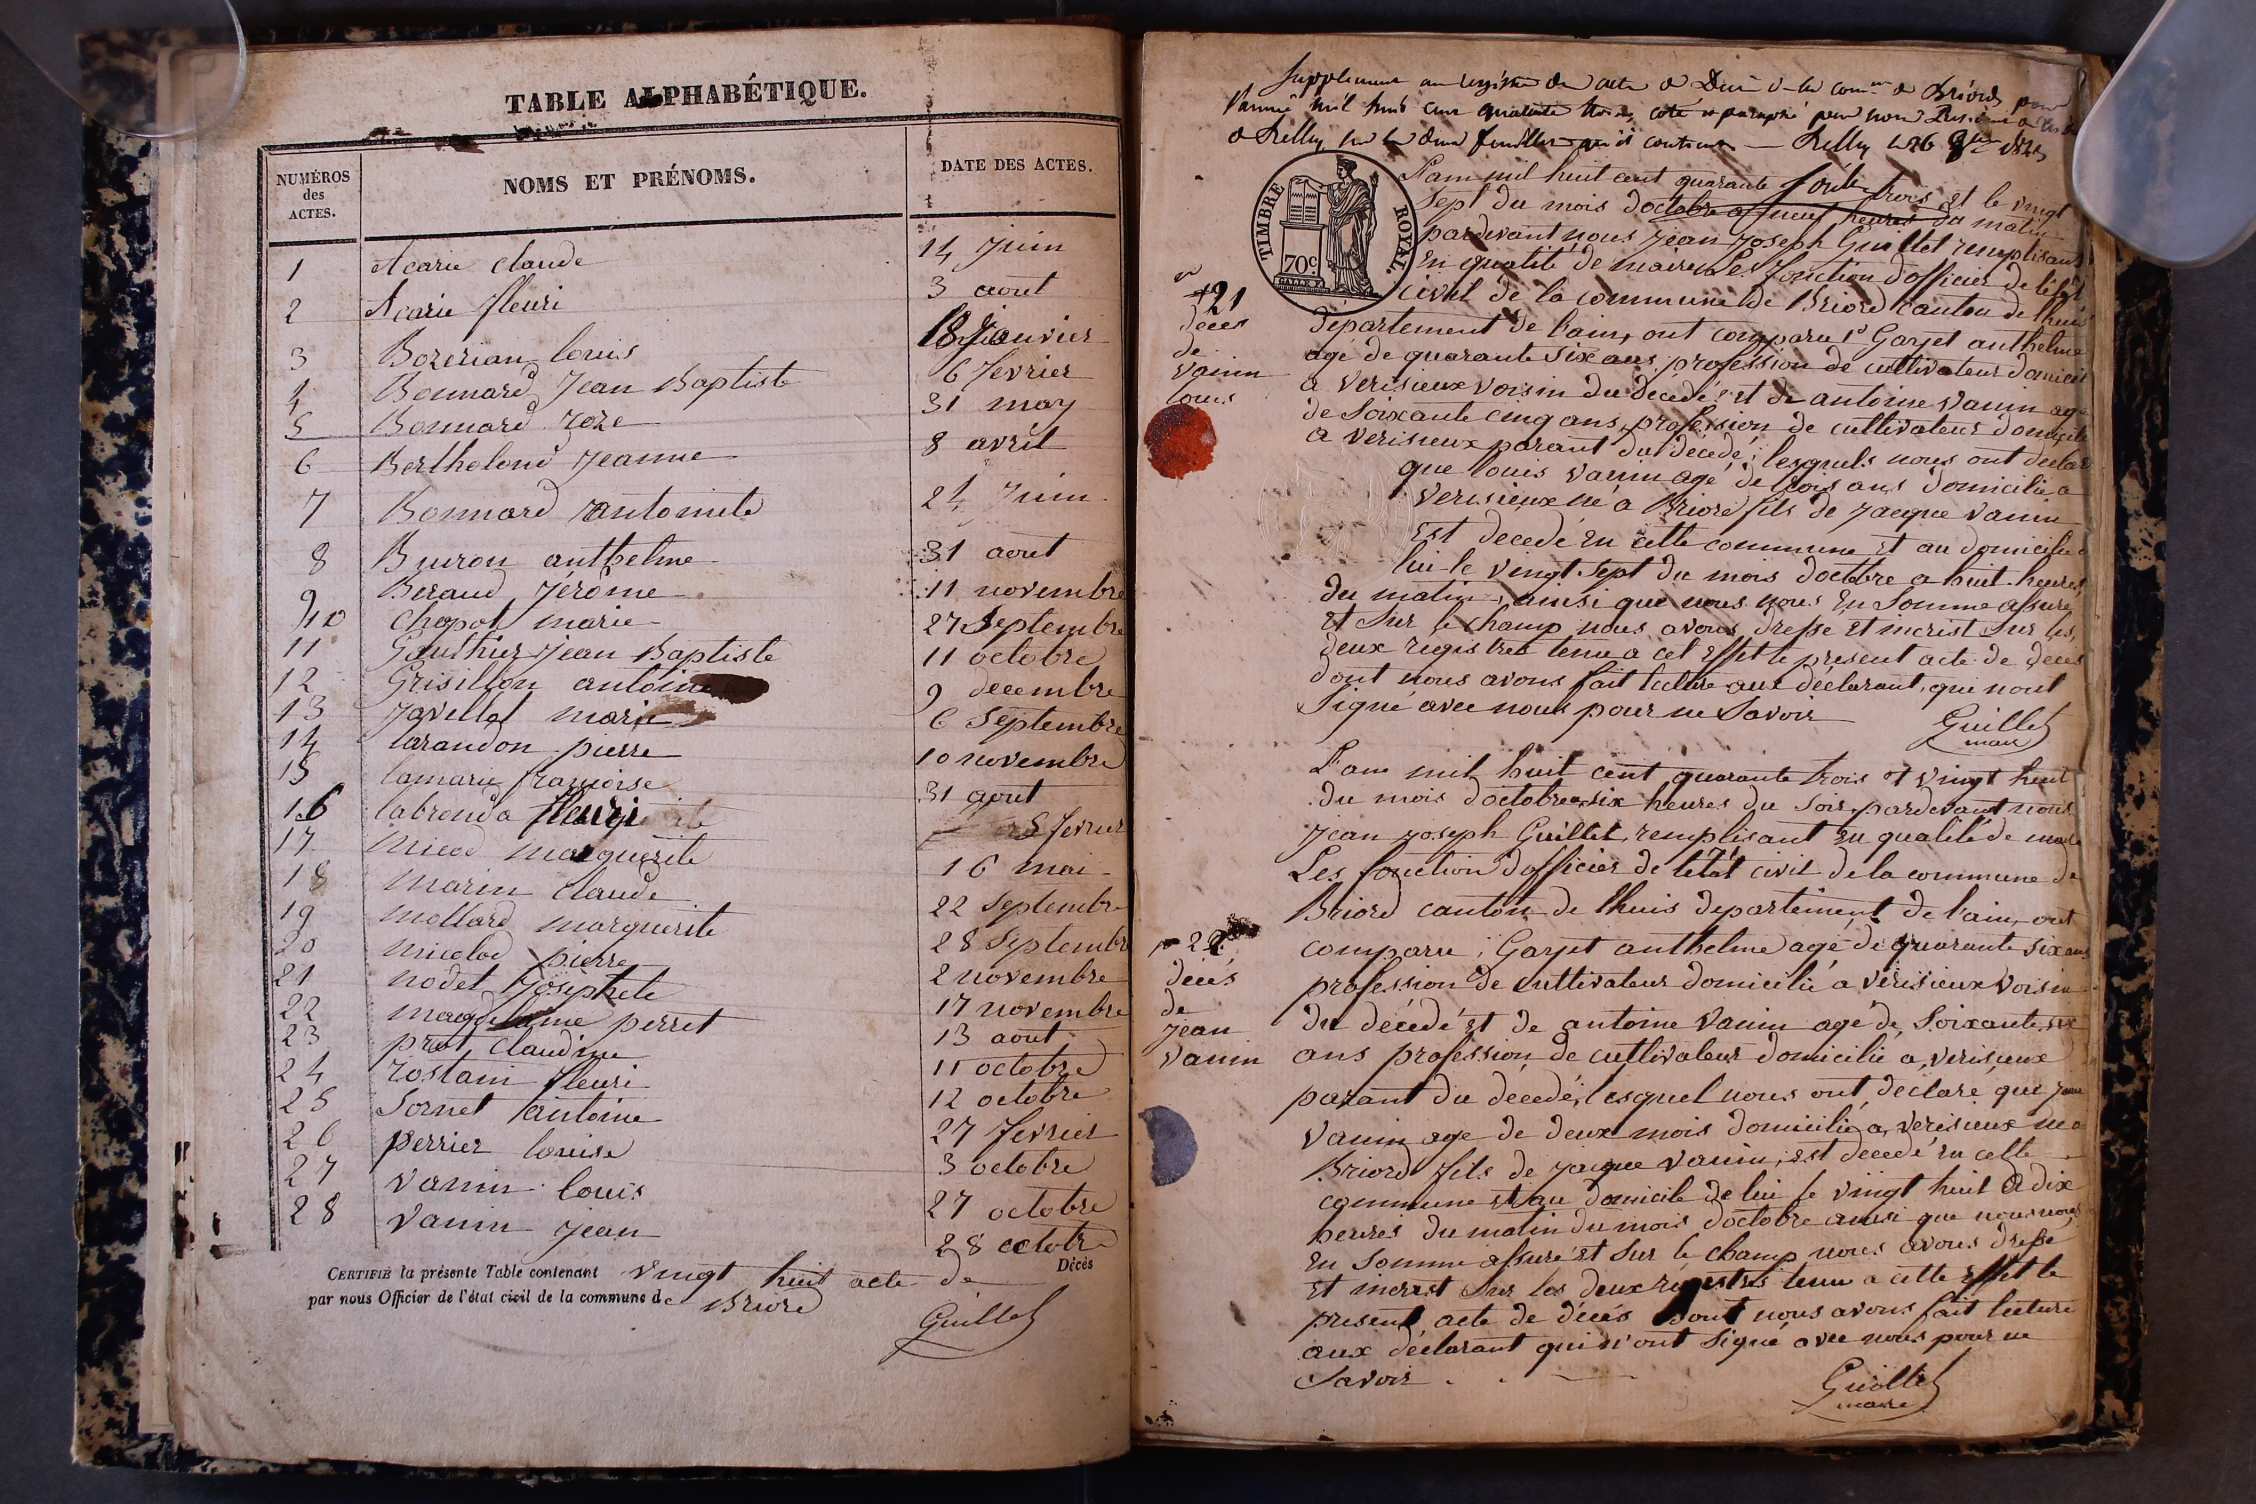 TABLE ALPHABÉTIQUE.
NUMÉROS des ACTES. NOMS ET PRÉNOMS. DATE DES ACTES.
1 Acarie claude 14 Juin
2 Acarie fleuri 3 aout
3 Bozerian louis 18 Janvier
4 Bonnard Jean Baptiste 6 fevrier
5 Bonnard roze 31 may
6 Berthelond Jeanne 8 avril
7 Bonnard antoinete 24 Juin
8 Buiron anthelme 31 aout
9 Beraud Jérôme 11 novembre
10 Chapot marie 27 Septembre
11 Gauthier Jean Baptiste 11 octobre
12 Grisillon antoine 9 decembre
13 Javellot marie 6 Septembre
14 larandon pierre 10 novembre
15 lamarie françoise 31 aout
16 labronda fleuri 5 fevrier
17 micod marguerite 16 mai
18 marin claude 22 Septembre
19 mollard marguerite 28 Septembre
20 micolod pierre 2 novembre
21 nodet Josephete 17 novembre
22 magdelaine perret 13 aout
23 prat Claudine 11 octobre
24 rostain fleuri 12 octobre
25 Sornet antoine 27 fevrier
26 perrier louise 3 octobre
27 vanin louis 27 octobre
28 vanin jean 28 octobre
CERTIFIÉ la présente Table contenant vingt huit acte de Décès
par nous Officier de l'état civil de la commune de Briord
Guillet
Supplement au registre des actes de Décès de la comne de Briord pour
l'année mil huit cent quarante trois, coté et paraphé par nous
de Belley, sur les deux feuillets qu'il contient — Belley le 26 8bre 1843
TIMBRE ROYAL.
70c.
L'an mil huit cent quarante trois et le vingt
Sept du mois doctobre a neuf heures du matin
pardevant nous Jean Joseph Guillet remplisant
En qualité de maire Les fonction d'officier de l'état
civil de la commune de Briord canton de lhuis
departement de l'ain, ont comparu Garjet anthelme
agé de quarante Six ans profession de cultivateur domicilié
a verisieux voisin du decedé et de antoine vanin agé
de Soixante cinq ans, profession de cultivateur domicilié
a verisieux parant du décedé, lesquels nous ont declaré
que louis vanin agé de trois ans domicilié a
verisieux né a Briord fils de jacque vanin
Est decedé En cette commune et au domicile de
lui le vingt Sept du mois doctobre a huit heures
du matin, ainsi que nous nous En Somme assuré
et Sur le champ nous avons dressé et incrist Sur les
deux registres tenu a cet Effet le présent acte de deces
dont nous avons fait lecture aux déclarant, qui n'ont
Signé avec nous pour ne Savoir
Guillet
maire
21
deces
de
vanin
louis
L'an mil huit cent quarante trois et vingt huit
du mois d'octobre a six heures du Soir pardevant nous
Jean joseph Guillet, remplisant En qualité de maire
Les fonction d'officier de l'état civil de la commune de
Briord canton de lhuis departement de l'ain, ont
comparu, Garjet anthelme agé de quarante six ans
profession de cultivateur domicilié a verisieux voisin
du décedé et de antoine vanin agé de Soixante six
ans profession de cultivateur domicilié a verisieux
parant du décedé, lesquel nous ont declaré que jean
vanin agé de deux mois domicilié a verisieux né a
Briord fils de jacque vanin, est decedé En cette
commune et au domicile de lui le vingt huit a dix
heures du matin du mois doctobre ainsi que nous nous
En Somme assuré et Sur le champ nous avons dressé
Et incrist Sur les deux registres tenu a cette Effet le
present acte de décés dont nous avons fait lecture
aux déclarant qui n'ont Signé avec nous pour ne
Savoir
Guillet
maire
22
décés
de
Jean
vanin